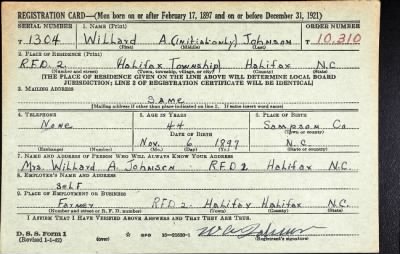 REGISTRATION CARD—(Men born on or after February 17, 1897 and on or before December 31, 1921)
SERIAL NUMBER 1. NAME (Print) ORDER NUMBER
T 1304 Willard A.(initial only) Johnson T 10,310
(First) (Middle) (Last)
2. PLACE OF RESIDENCE (Print)
R.F.D. 2 Halifax Township Halifax N.C.
(Number and street) (Town, township, village, or city) (County) (State)
[THE PLACE OF RESIDENCE GIVEN ON THE LINE ABOVE WILL DETERMINE LOCAL BOARD
JURISDICTION; LINE 2 OF REGISTRATION CERTIFICATE WILL BE IDENTICAL]
3. MAILING ADDRESS
Same
[Mailing address if other than place indicated on line 2. If same insert word same]
4. TELEPHONE 5. AGE IN YEARS 6. PLACE OF BIRTH
None 44 Sampson Co.
DATE OF BIRTH (Town or county)
Nov. 6 1897 N.C.
(Number) (Mo.) (Day) (Yr.) (State or country)
7. NAME AND ADDRESS OF PERSON WHO WILL ALWAYS KNOW YOUR ADDRESS
Mrs. Willard A. Johnson R.F.D 2 Halifax N.C.
8. EMPLOYER'S NAME AND ADDRESS
Self
9. PLACE OF EMPLOYMENT OR BUSINESS
Farmer RFD 2 Halifax Halifax N.C.
(Number and street or R. F. D. number) (Town) (County) (State)
I AFFIRM THAT I HAVE VERIFIED ABOVE ANSWERS AND THAT THEY ARE TRUE.
D. S. S. Form 1
(Revised 1-1-42) (over) GPO 16—21630-1 W A Johnson
(Registrant's signature)